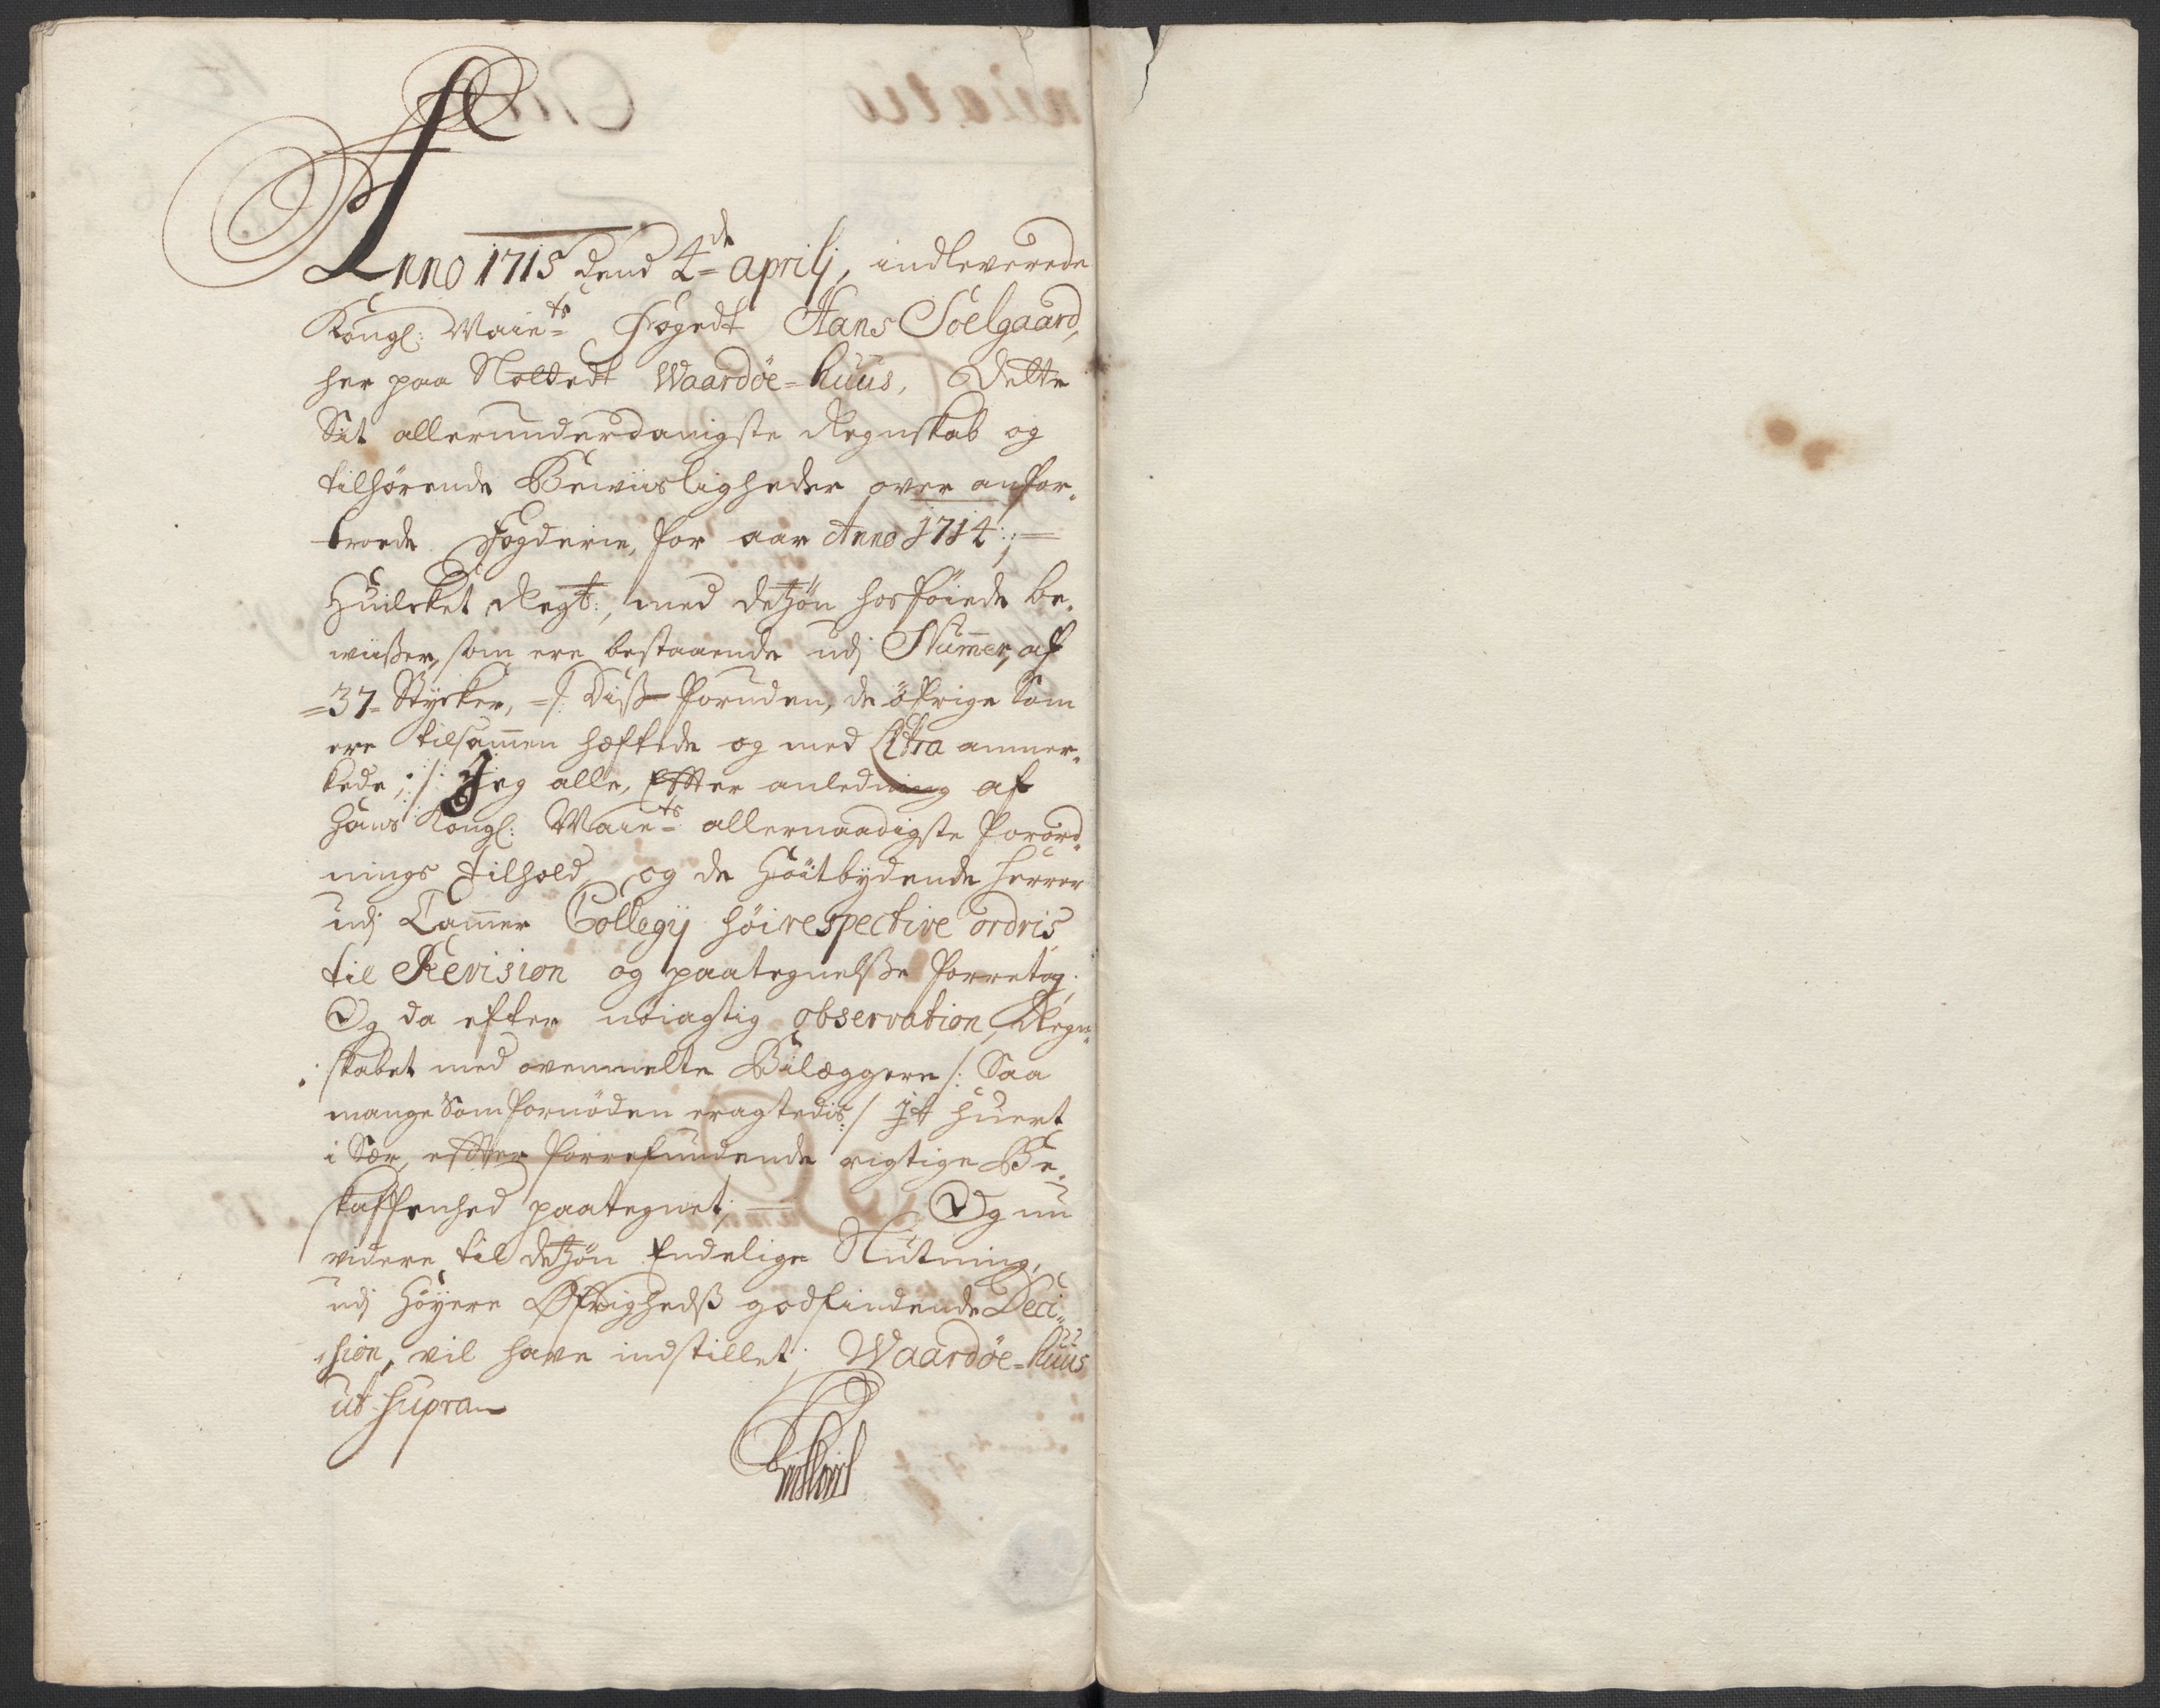 Anno 1715 dend 4de aprilj, indleverede
Kongl: Maiets Fogedt Hans Soelgaard,
her paa Slottedt Waardøe=huus, Dette
Sit allerunderdanigste Regnskab og
tilhørende Beviisligheder over anfor„
troede Fogderie, for aar Anno 1714:;=
Huilcket Regt:, med detzøn hosføiede be„
viißer, som ere bestaaende udj Numer, af
=37= Stycker, =/: Diß foruden, de öfrige Som
ere tilsamen hæftede og med Litra anmer„
kede;:/: Jeg alle, Effter anledning af
Hans Kongl: Maiets allernaadigste forord„
nings tilhold, og de Høitbydende Herrer
udj Camer Collegij høirespective ordris
til Revision og paategnelße forretog;
Og da efter nöiagtig observation, Regn„
skabet med ovenmelte Bilæggere /: Saa
mange Som fornöden eragtedis :/ It huert
i Sær, effter forrefundende rigtige Be„
skaffenhed paategnet; = Og nu
videre til detzøn Endelige Slutning,
udj Höyere Øfrighedß godfindende Deci„
sion, vil have indstillet; Waardøe=huus
ut supra